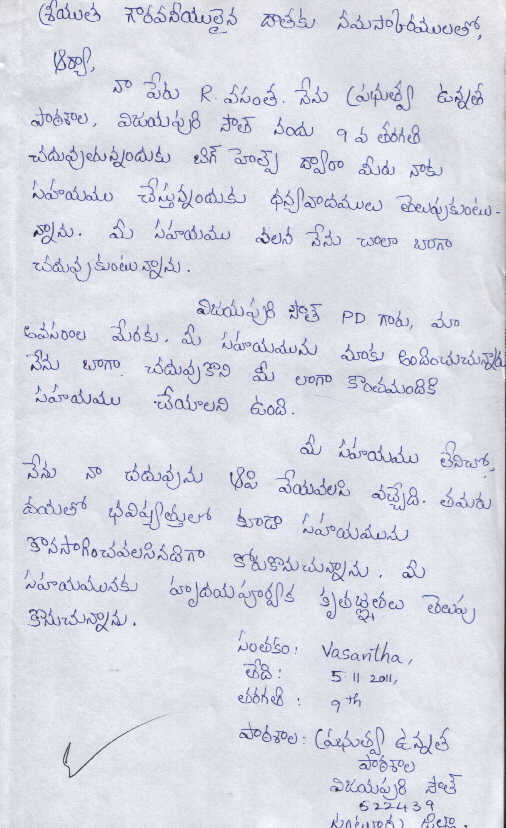 శ్రీయుత గౌరవనీయులైన దాతకు నమస్కారములతో,
ఆర్యా,
నా పేరు R. వసంత. నేను ప్రభుత్వ ఉన్నత
పాఠశాల, విజయపురి సౌత్ నందు 9 వ తరగతి
చదువుతున్నందుకు బిగ్ హెల్ప్ ద్వారా మీరు నాకు
సహాయము చేస్తున్నందుకు ధన్యవాదములు తెలుపుకుంటు-
న్నాను. మీ సహాయము వలన నేను చాలా బాగా
చదువుకుంటున్నాను.
విజయపురి సౌత్ PD గారు, మా
అవసరాల మేరకు. మీ సహాయమును మాకు అందించుచున్నారు
నేను బాగా చదువుకొని మీ లాగా కొంతమందికి
సహాయము చేయాలని ఉంది.
మీ సహాయము లేనిచో,
నేను నా చదువును ఆపి వేయవలసి వచ్చేది. తమరు
దయతో భవిష్యత్తులో కూడా సహాయమును
కొనసాగించవలసినదిగా కోరుకొనుచున్నాను. మీ
సహాయమునకు హృదయపూర్వక కృతజ్ఞతలు తెలుపు
కొనుచున్నాను.
సంతకం: Vasantha,
తేది: 5 11 2011,
తరగతి: 9th
పాఠశాల: ప్రభుత్వ ఉన్నత
పాఠశాల
విజయపురి సౌత్
522439
గుంటూరు జిల్లా.